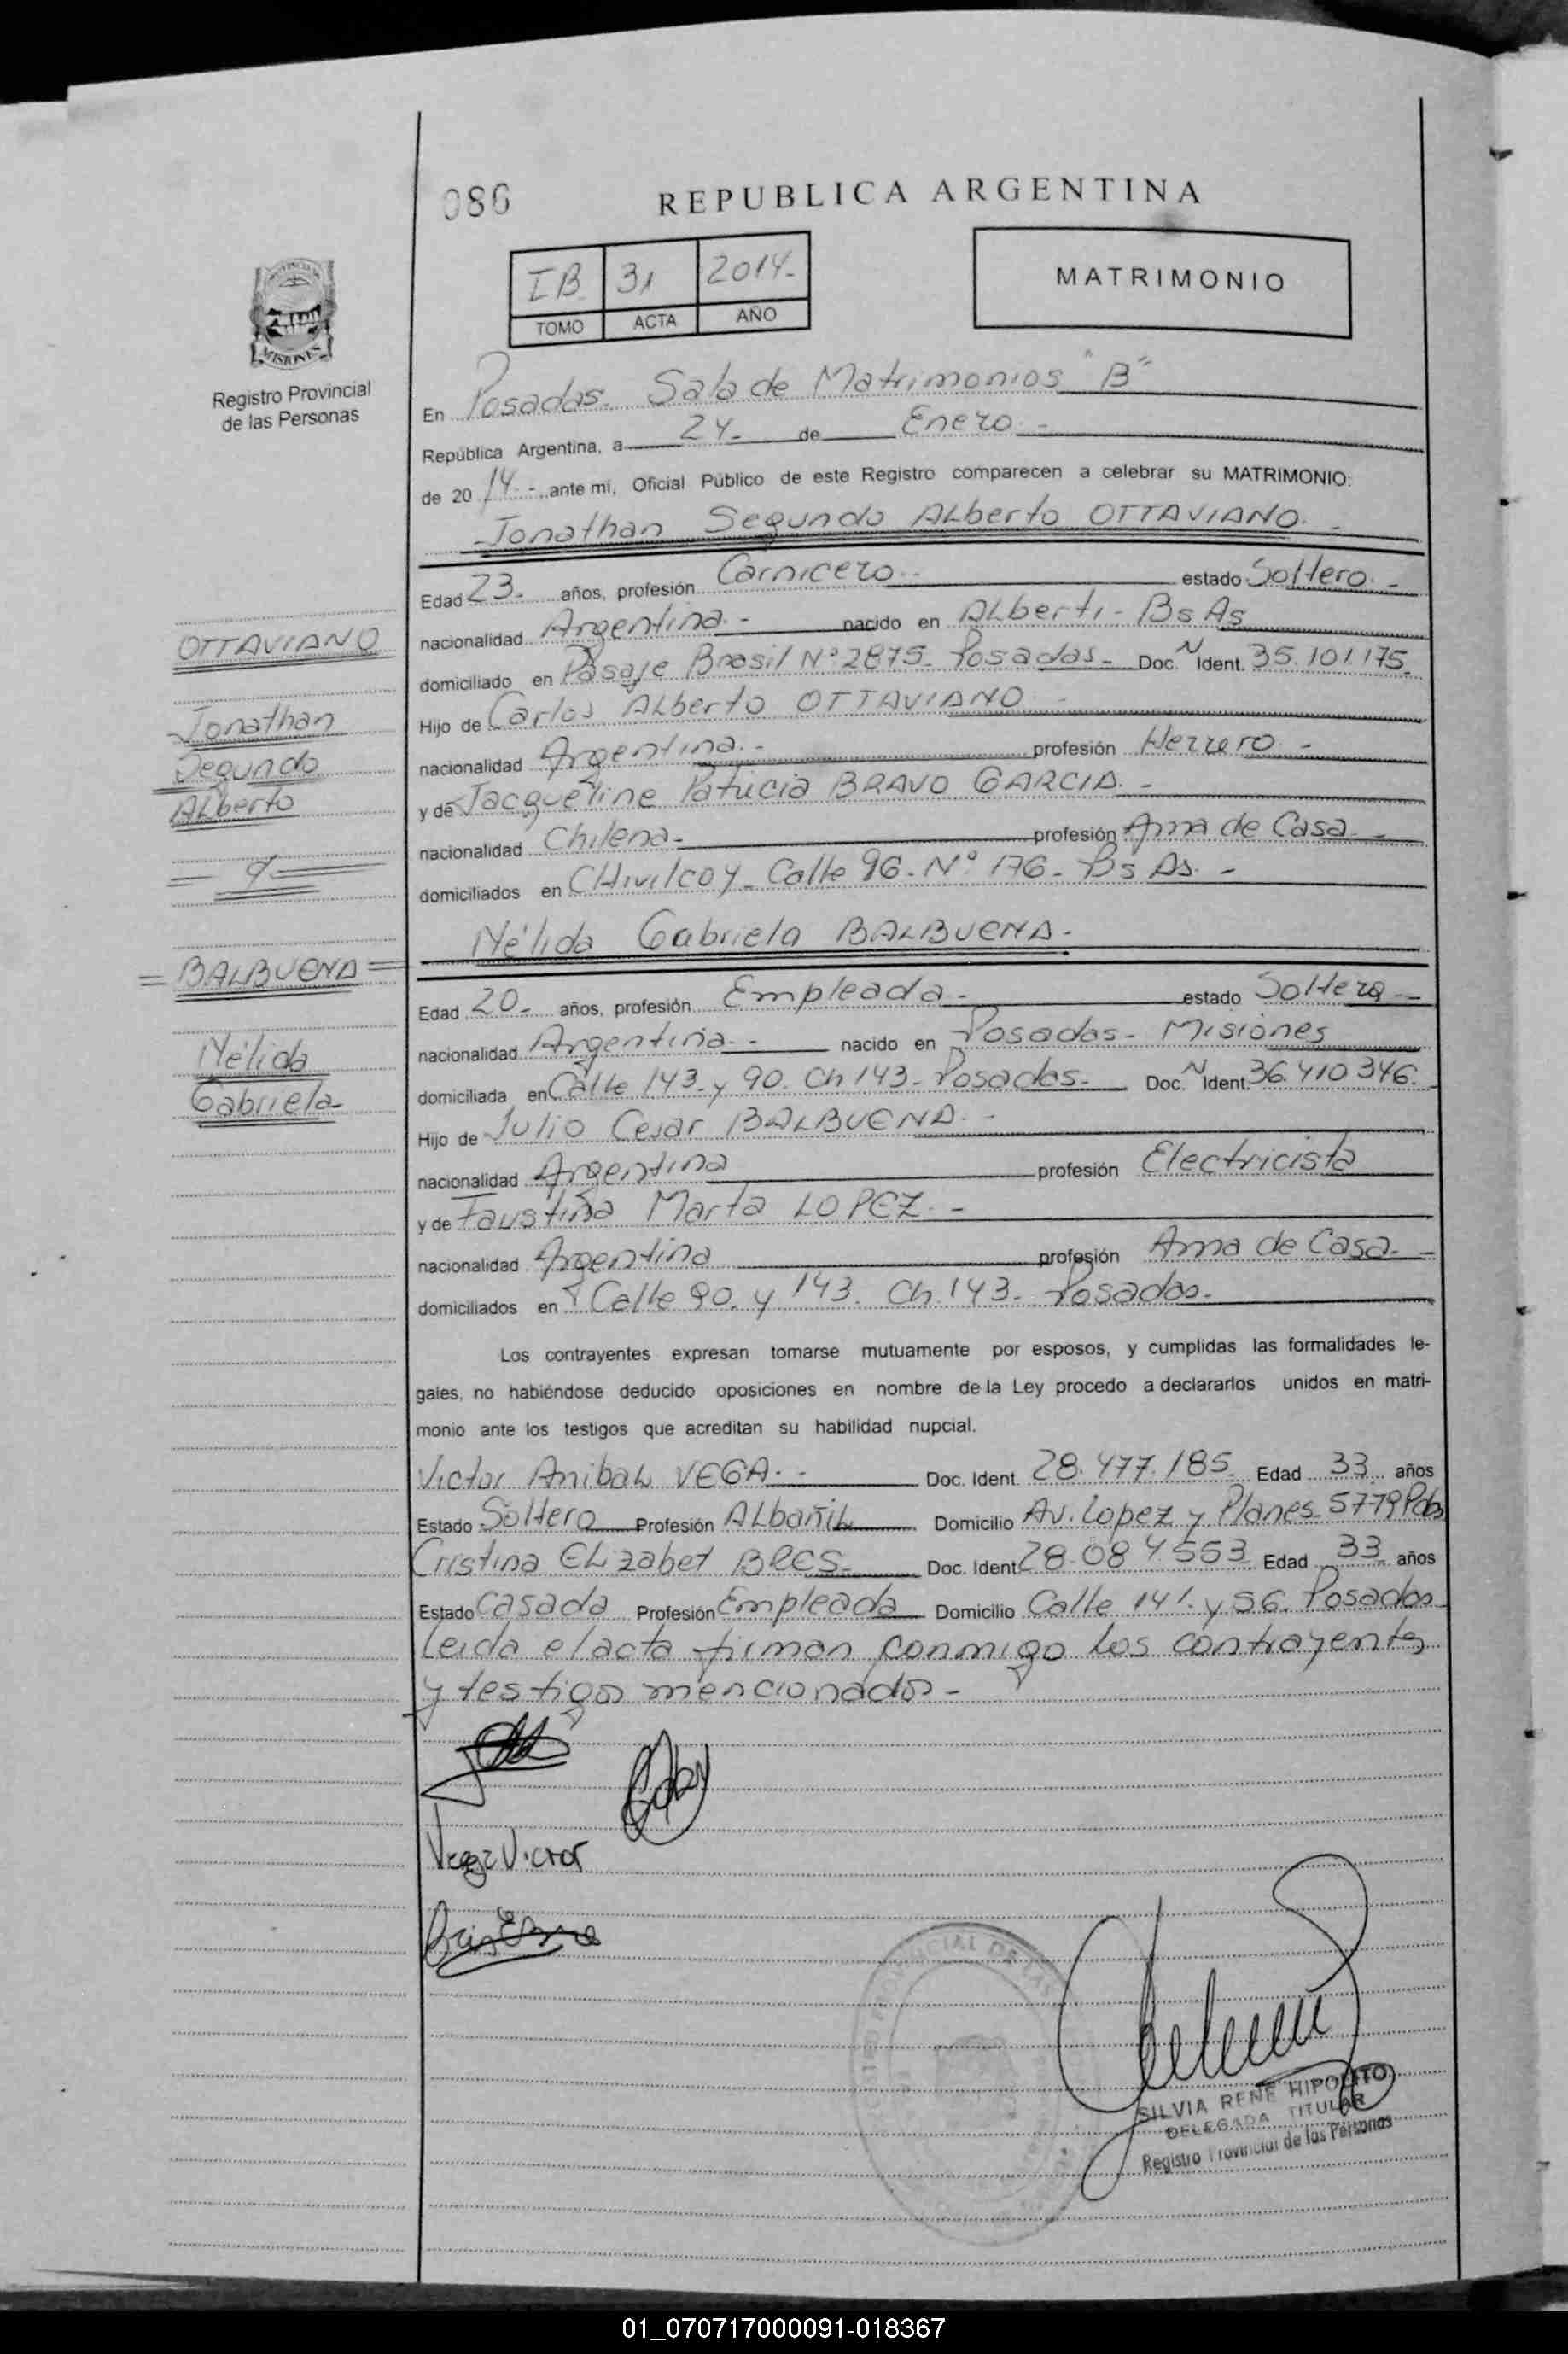 086
REPUBLICA ARGENTINA
IB 31 2014-
TOMO ACTA AÑO
MATRIMONIO
MISIONES
Registro Provincial
de las Personas
En Posadas- Sala de Matrimonios "B"
República Argentina, a 24- de Enero -
de 20 14 - ante mi, Oficial Público de este Registro comparecen a celebrar su MATRIMONIO:
Jonathan Segundo ALberto OTTAVIANO. -
Edad 23- años, profesión Carnicero - estado Soltero. -
nacionalidad Argentina. - nacido en ALberti - Bs As
domiciliado en Pasaje Brasil N° 2875- Posadas- Doc. N Ident. 35.101.175
Hijo de Carlos ALberto OTTAVIANO -
nacionalidad Argentina. - profesión Herrero -
y de Jacqueline Patricia BRAVO GARCIA. -
nacionalidad Chilena- profesión Ama de Casa -
domiciliados en CHivilcoy- Calle 96- N° 176- Bs As. -
Nélida Gabriela BALBUENA-
Edad 20- años, profesión Empleada - estado Soltera -
nacionalidad Argentina. - nacido en Posadas- Misiones
domiciliada en Calle 143- y 90. Ch 143- Posadas- Doc. N Ident. 36.410.346.
Hijo de Julio Cesar BALBUENA. -
nacionalidad Argentina profesión Electricista
y de Faustina Marta LOPEZ. -
nacionalidad Argentina profesión Ama de Casa. -
domiciliados en Calle 90. y 143. Ch. 143- Posadas-
Los contrayentes expresan tomarse mutuamente por esposos, y cumplidas las formalidades le-
gales, no habiéndose deducido oposiciones en nombre de la Ley procedo a declararlos unidos en matri-
monio ante los testigos que acreditan su habilidad nupcial.
Victor AnibaL VEGA. - Doc. Ident. 28.477.185 Edad 33 años
Estado Soltero Profesión ALbañiL Domicilio Av. Lopez y Planes 5779 Pdas
Cristina ELizabet BRES- Doc. Ident. 28.084.553 Edad 33 años
Estado Casada Profesión Empleada Domicilio Calle 141. y 56. Posadas
Leida el acta firman conmigo los contrayentes
y testigos mencionados -
OTTAVIANO
Jonathan
Segundo
ALberto
= y =
= BALBUENA =
Nélida
Gabriela-
Gaby
Vega Victor
SILVIA RENE HIPOLITO
DELEGADA TITULAR
Registro Provincial de las Personas
01_070717000091-018367